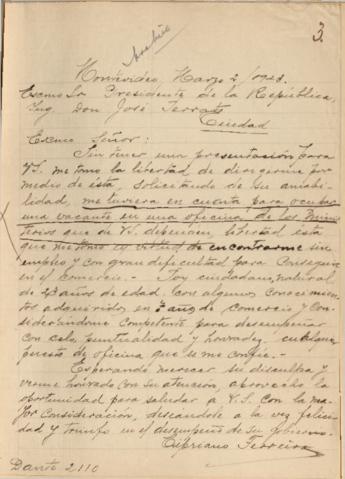 3.
Archivo
Montevideo, Marzo 2/1923.
Excmo Sr Presidente de la República,
Ing. Don José Serrato
Ciudad
Excmo Señor:
Sin tener una presentación para
V.S. me tomo la libertad de dirigirme por
medio de ésta, solicitando de su amabi-
lidad, me tuviera en cuenta para ocupar
una vacante en una oficina de los Minis-
terios que de V.S. dependen, libertad ésta
que me tomo en virtud de encontrarme sin
empleo y con gran dificultad para conseguir
en el comercio. - Soy ciudadano, natural
de 23 años de edad, con algunos conocimien-
tos adquiridos en año de comercio y con-
siderándome competente para desempeñar
con celo, puntualidad y honradez, cualquier
puesto de oficina que se me confíe. -
Esperando merecer su disculpa y
verme honrado con su atención, aprovecho la
oportunidad para saludar a V.S. con la ma-
yor consideración, deseándole a la vez felici-
dad y triunfo en el desempeño de su gobierno.
Cipriano Ferreira
Dante 2110